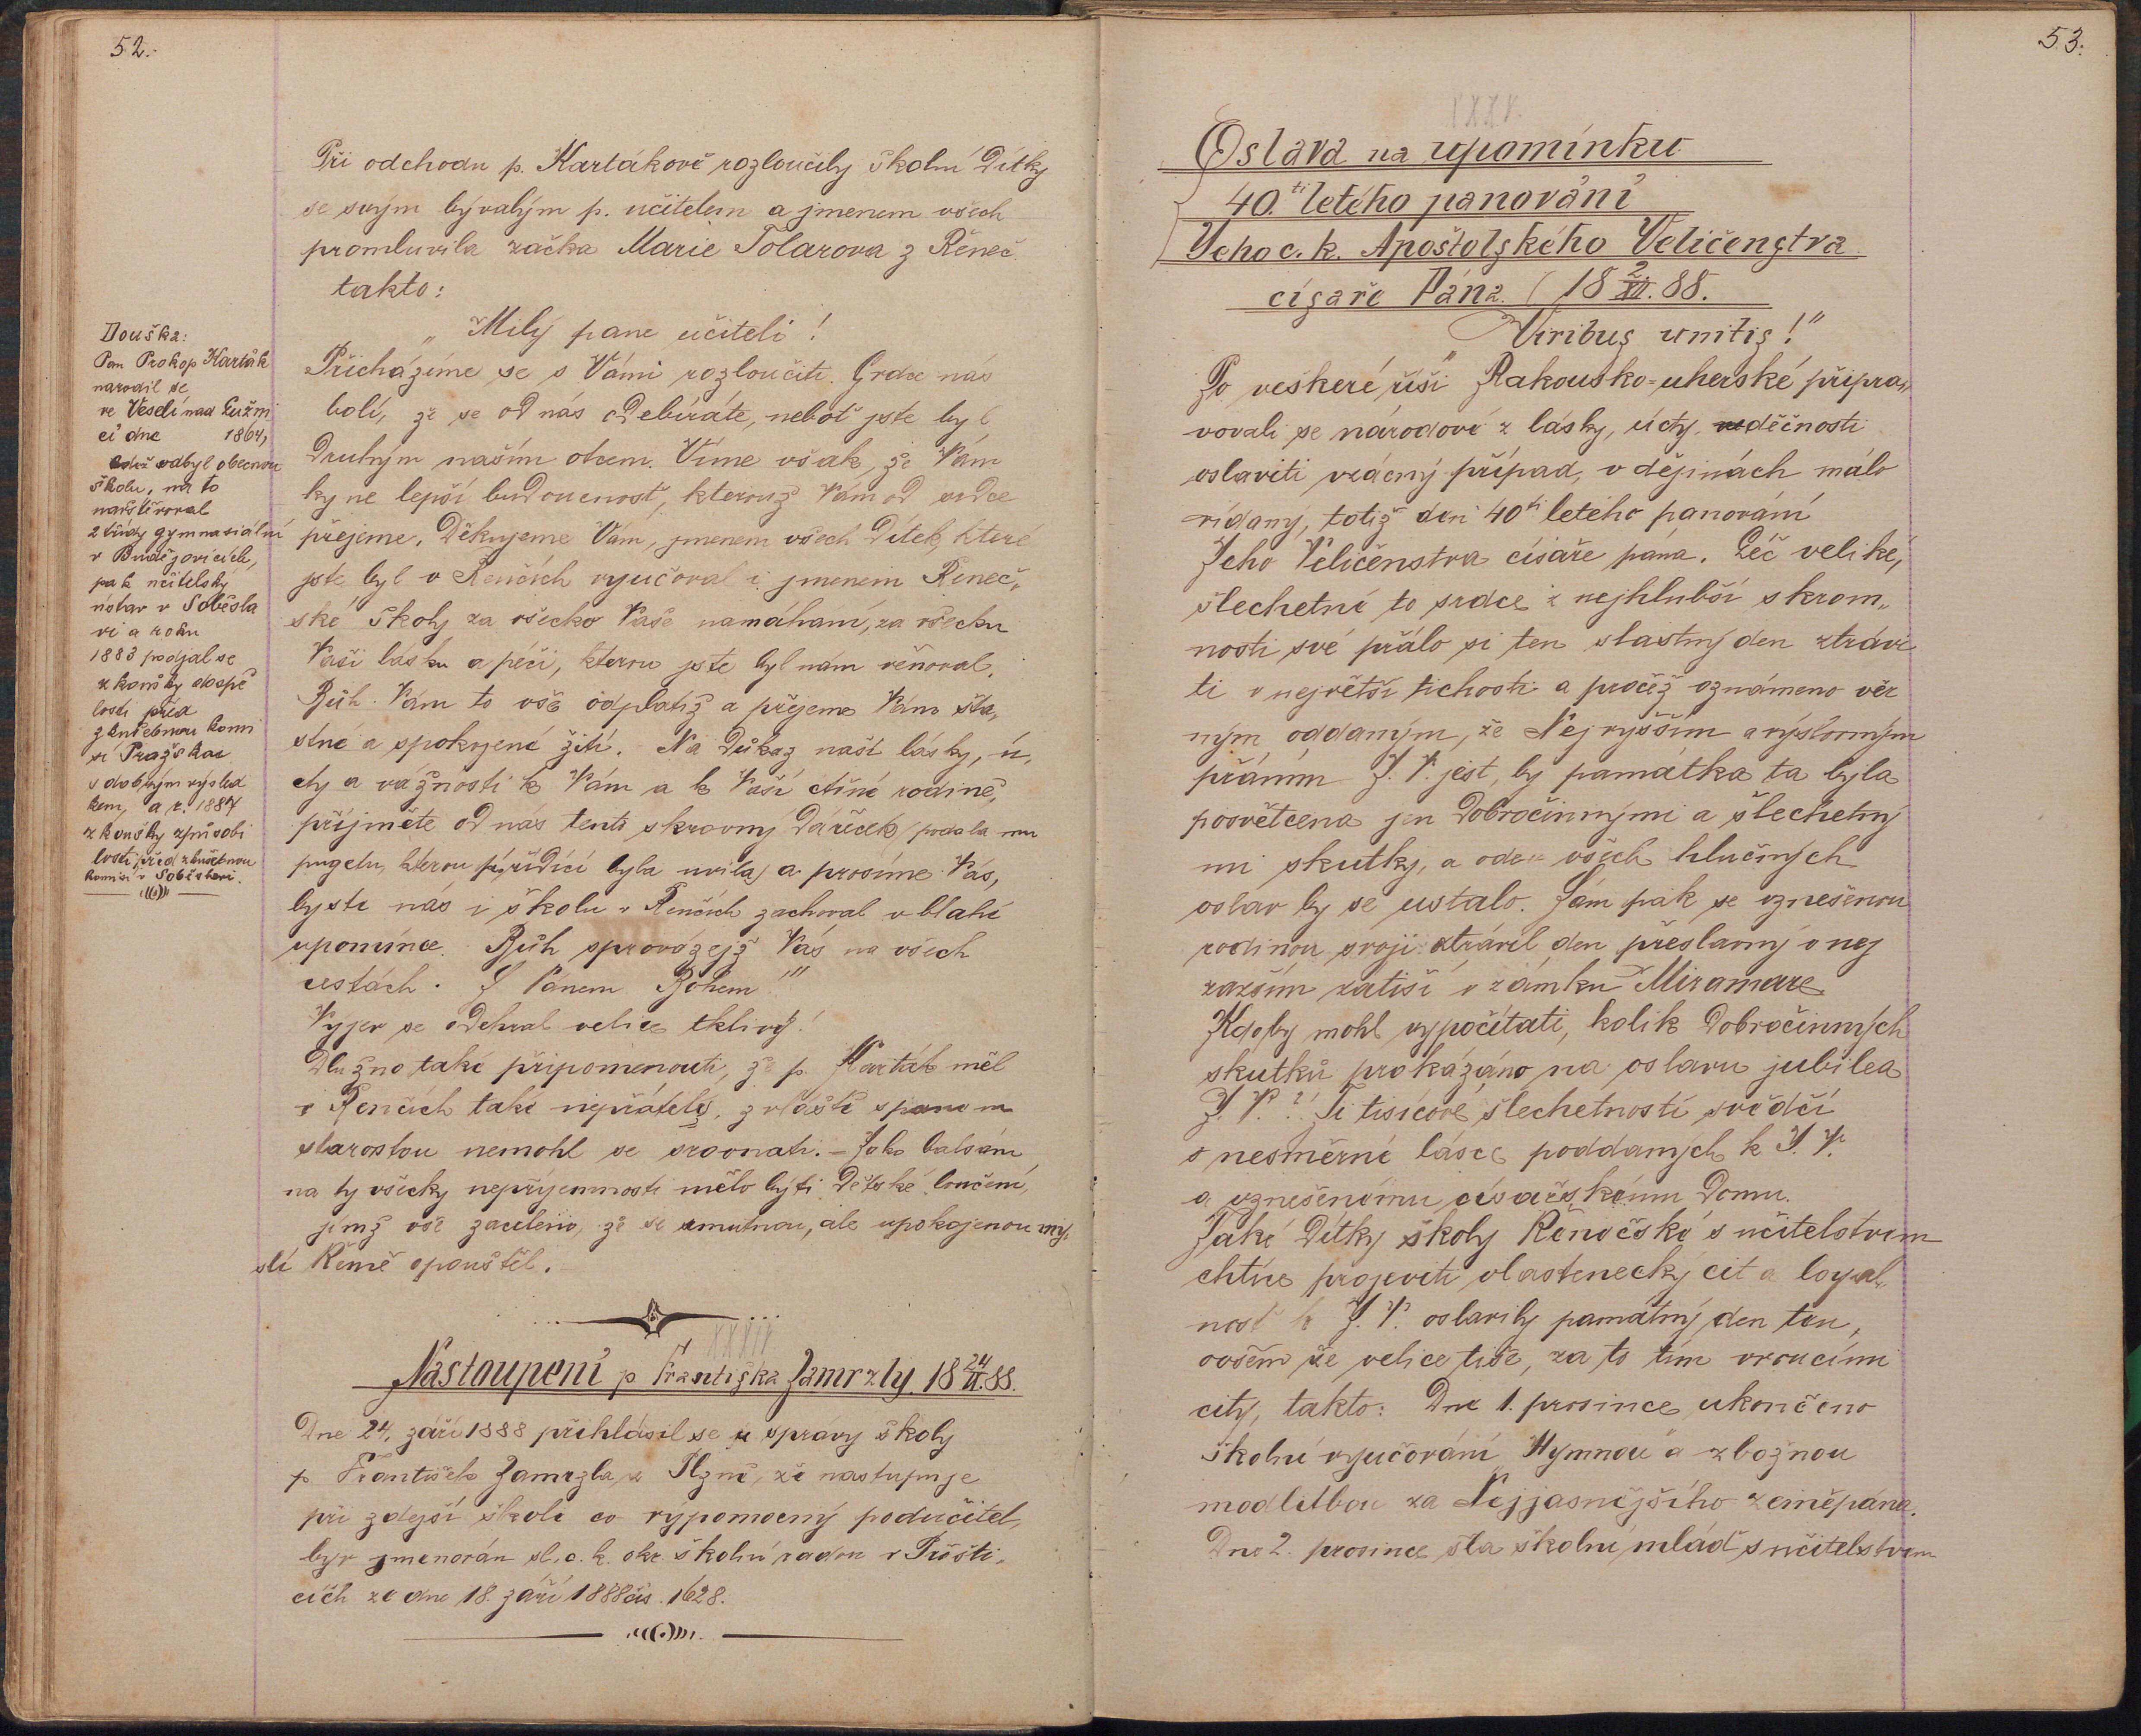 52.
Při odchodu p. Kartákově rozloučily školní dítky
se svým bývalým p. učitelem a jmenem všech
promluvila začka Marie Tolarova z Řeneč
takto:
„Milý pane učiteli!
Přicházíme se s Vámi rozloučiti. Srdce nás
bolí, že se od nás odebíráte, neboť jste byl
druhým naším otcem. Víme však, že Vám
kyne lepší budoucnosť, kterouž Vám od srdce
přejeme. Děkujeme Vám, jmenem všech dítek, které
jste byl v Řenčích vyučoval i jmenem Řeneč„
ské školy za všecko Vaše namáhaní, za všecku
Vaši lásku a péči, kterou jste byl nám věnoval.
Bůh Vám to vše odplatiž a přejeme Vám šťa„
stné a spokojené žití. Na důkaz naší lásky, ú„
cty a vážnosti k Vám a k Vaší ctěné rodině,
přijměte od nás tento skrovný dáreček (podala mu
pugetu, kterou pí řídící byla uvila) a prosíme Vás,
byste nás i školu v Řenčích zachoval v blahé
upomínce. Bůh sprovázejž Vás na všech
cestách. S Pánem Bohem!"
Výjev se odehral velice tklivý!
Dlužno také připomenouti, že p. Karták měl
v Řenčích také nepřátely, zvláště s panem
starostou nemohl se srovnati. – Jako balsám
na ty všecky nepříjemnosti mělo býti dětské loučení,
jímž vše zaceleno, že se smutnou, ale upokojenou mý„
slí Řenče opouštěl.
Douška:
Pan Prokop Karták
narodil se
ve Veselí nad Lužni
cí dne 1864,
odbyl obecnou
školu, na to
navštěvoval
2 třídy gymnasiální
v Budějovicích,
pak učitelský
ústav v Soběsla
vi a roku
1883 podjal se
zkoušky dospě
losti před
zkušebnou komi
sí Pražskou
s dobrým výsled
kem, a r. 1887
zkoušky způsobi
losti před zkušebnou
komisí v Soběslavi.
XXXIV
Nastoupení p. Františka Zamrzly 18 24/IX. 88.
Dne 24. září 1888 přihlásil se u správy školy
p. František Zamrzla z Plzně, že nastupuje
při zdejší škole co výpomocný podučitel,
byv jmenován sl. c. k. okr. školní radou v Přešti„
cích ze dne 18. září 1888 čís. 1628.
53.
XXXV.
Oslava na upomínku
40.ti letého panování
Jeho c. k. Apoštolského Veličenstva
císaře Pána. (18 2/XII. 88.
„Viribus unitis!"
Po veškeré říši Rakousko-uherské připra„
vovali se národové z lásky, úcty, vděčnosti
oslaviti vzácný případ, v dějinách málo
vídaný, totiž den 40ti letého panování
Jeho Veličenstva císaře pána. Leč veliké,
šlechetné to srdce z nejhlubší skrom„
nosti své přálo si ten slastný den ztrávi
ti v největší tichosti a pročež oznámeno věr
ným oddaným, že Nejvyšším a výslovným
přáním J. V. jest, by památka ta byla
posvětcena jen dobročinnými a šlechetný
mi skutky, a ode všech hlučných
oslav by se ustalo. Sám pak se vznešenou
rodinou svojí ztrávil den přeslavný v nej
zazším zátiší v zámku Miramare.
Kdoby mohl vypočítati, kolik dobročinných
skutků prokázáno na oslavu jubilea
J. V.?! Ti tisícové šlechetností svědčí
o nesměrné lásce poddaných k J. V.
a vznešenému císařskému Domu.
Také dítky školy Řenečské s učitelstvem
chtíce projeviti vlastenecký cit a loyal„
nosť k J. V. oslavily památný den ten,
ovšem že velice tiše, za to tím vroucími
city, takto: Dne 1. prosince ukončeno
školní vyučování „Hymnou" a zbožnou
modlitbou za Nejjasnějšího zeměpána.
Dne 2. prosince šla školní mládež s učitelstvem